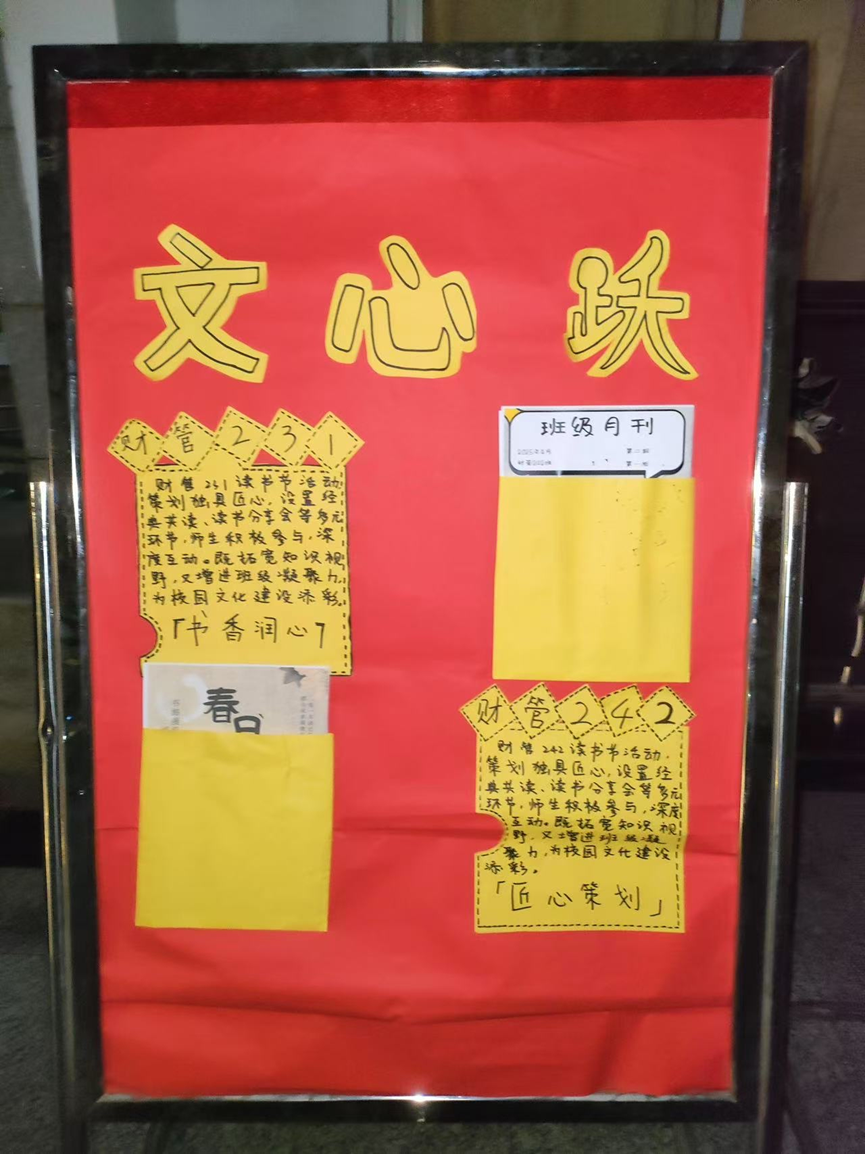 文心跃
财管231
财管231读书节活动,
策划独具匠心,设置经
典共读、读书分享会等多元
环节,师生积极参与,深
度互动。既拓宽知识视
野,又增进班级凝聚力,
为校园文化建设添彩。
「书香润心」
春日
班级月刊
财管242
财管242读书节活动,
策划独具匠心,设置经
典共读、读书分享会等多元
环节,师生积极参与,深度
互动。既拓宽知识视
野,又增进班级凝
聚力,为校园文化建设
添彩。
「匠心策划」